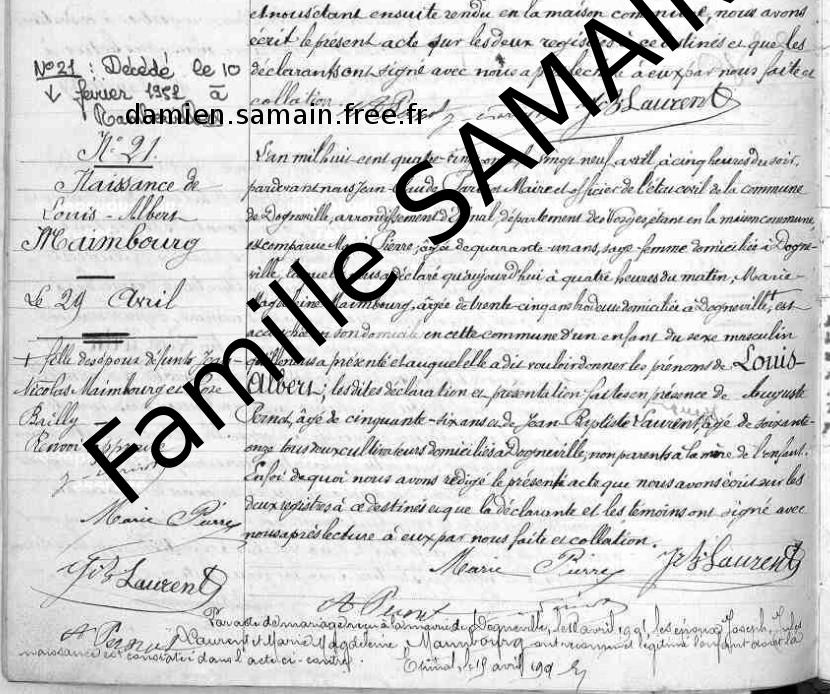 et nous étant ensuite rendu en la maison commune, nous avons
écrit le présent acte sur les deux registres à ce destinés et que les
déclarants ont signé avec nous après lecture à eux par nous faite et
collation
A Pernot
J B Laurent
N° 21 : Décédé le 10
février 1952 à
damien.samain.free.fr
Famille SAMAIN
N° 21.
Naissance de
Louis-Albert
Maimbourg
Le 29 Avril
+ fille des époux défunts Jean-
Nicolas Maimbourg et Rose
Bailly
Renvoi approuvé
Marie Pierre
J B Laurent
A Pernot
L'an mil huit cent quatre-vingt le vingt neuf avril, à cinq heures du soir,
pardevant nous Jean-Claude Maire et officier de l'état civil de la commune
de Dogneville, arrondissement d'Epinal, département des Vosges, étant en la maison commune,
est comparue Marie Pierre, âgée de quarante-un ans, sage-femme domiciliée à Dogne-
ville, laquelle nous a déclaré qu'aujourd'hui à quatre heures du matin, Marie
Magdeleine Maimbourg, âgée de trente-cinq ans domiciliée à Dogneville +, est
accouchée en son domicile en cette commune d'un enfant du sexe masculin
qu'elle nous a présenté et auquel elle a dit vouloir donner les prénoms de Louis-
Albert; les dites déclaration et présentation faites en présence de Auguste
Pernot, âgé de cinquante-six ans et de Jean-Baptiste Laurent, âgé de soixante-
onze tous deux cultivateurs domiciliés à Dogneville, non parents à la mère de l'enfant.
En foi de quoi nous avons rédigé le présent acte que nous avons écrit sur les
deux registres à ce destinés et que la déclarante et les témoins ont signé avec
nous après lecture à eux par nous faite et collation.
Marie Pierre
J B Laurent
A Pernot
Par acte de mariage reçu à la mairie de Dogneville, le avril les époux Joseph, Jules
Laurent et Marie Magdeleine Maimbourg ont reconnu et légitimé l'enfant dont la
naissance est constatée dans l'acte ci-contre.
Epinal, avril